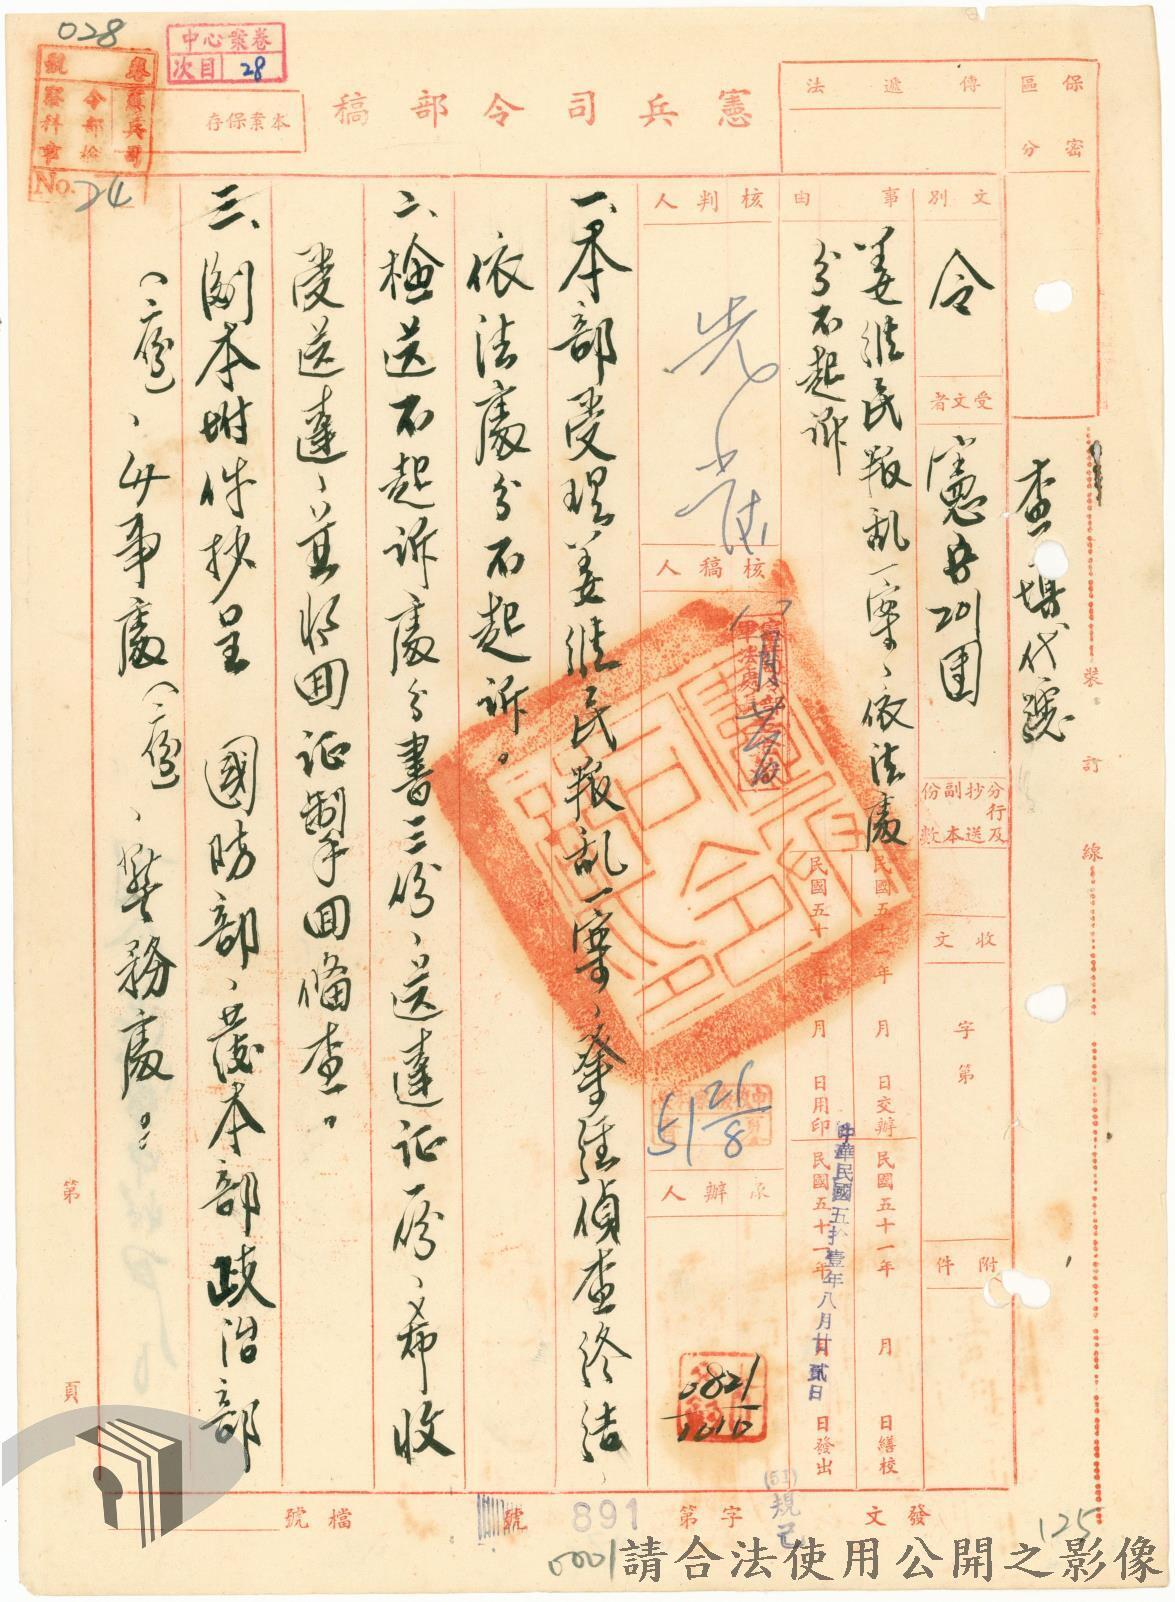 028
中心案卷
次目 28
No. 24
本案保存
憲兵司令部稿
傳遞法
保密區分
查填代號
文別
令
受文者
憲兵201團
分行及抄送副本份數
收文
字第
附件
事由
姜維民叛乱一案、依法處
分不起訴
民國五十一年 月 日交辦
民國五十一年 月 日繕校
民國五十一年 月 日用印
民國五十一年 月 日發出
中華民國五拾壹年八月廿貳日
核判人
核稿人
51 21/8
承辦人
0821/1010
一、本部受理姜維民叛乱一案、業經偵查終結、
依法處分不起訴。
二、檢送不起訴處分書三份、送達証一份、希收
受送達、並將回証掣回備查。
三、副本附件抄呈 國防部、發本部政治部
(二份)、軍事處(二份)、警務處。
第 頁
發文
(51)規己
字第
891
號
檔號
0001
125
請合法使用公開之影像